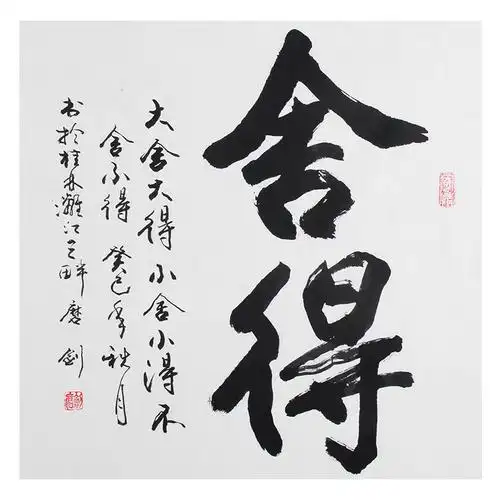 舍得
大舍大得小舍小得不
舍不得 癸巳年秋月
书於桂林漓江之畔磨剑